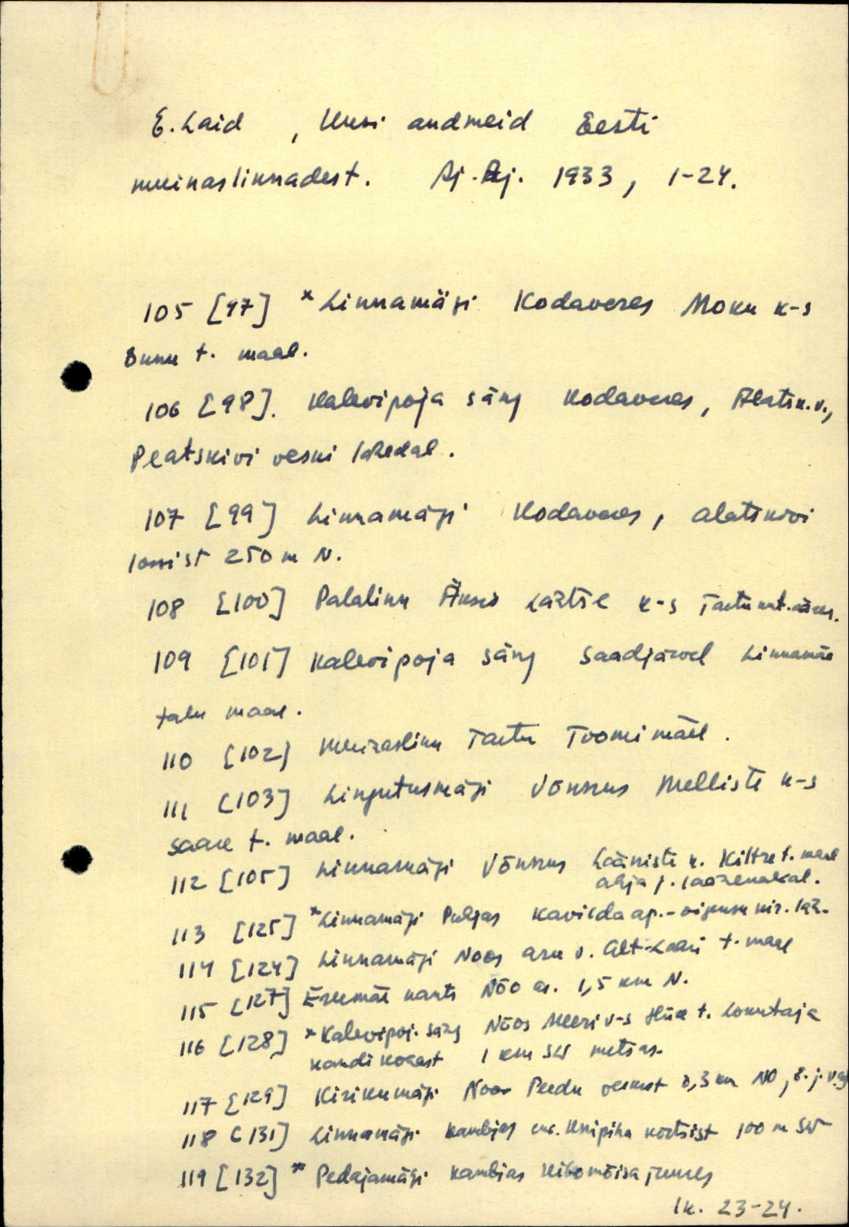 E. Laid , Uusi andmeid Eesti
muinaslinnadest. Aj. Aj. 1933, 1-24.
105 [97] *Linnamägi Kodaveres Moku k-s
t. maal.
106 [98]. Kalevipoja säng Kodaveres, Alatsk. v.,
Peatskivi veski lähedal.
107 [99] Linnamägi Kodaveres, Alatskivi
lossist 250 m N.
108 [100] Palalinn Äksis k-s Tartu
109 [101] Kalevipoja säng Saadjärvel Linnamäe
talu maal.
110 [102] Muinaslinn Tartu Toomimäel.
111 [103] Lingutusmägi Võnnus Melliste k-s
Saare t. maal.
112 [105] Linnamägi Võnnus Lääniste k. t. maal
Ahja j.
113 [125] *Linnamägi Puhjas Kavilda ap.-õigeusu
114 [124] Linnamägi Nõos Aru v. Alt-Laari t. maal
115 [127] Nõo 1,5 km N.
116 [128] *Kalevipoj. säng Nõos Meeri v-s t.
1 km SW metsas.
117 [129] Kirikumägi Nõos Peedu veskist 0,3 km NO,
118 [131] Linnamägi Kambjas kõrtsist 100 m SW
119 [132] * Pedajamägi Kambjas mõisa juures
lk. 23-24.